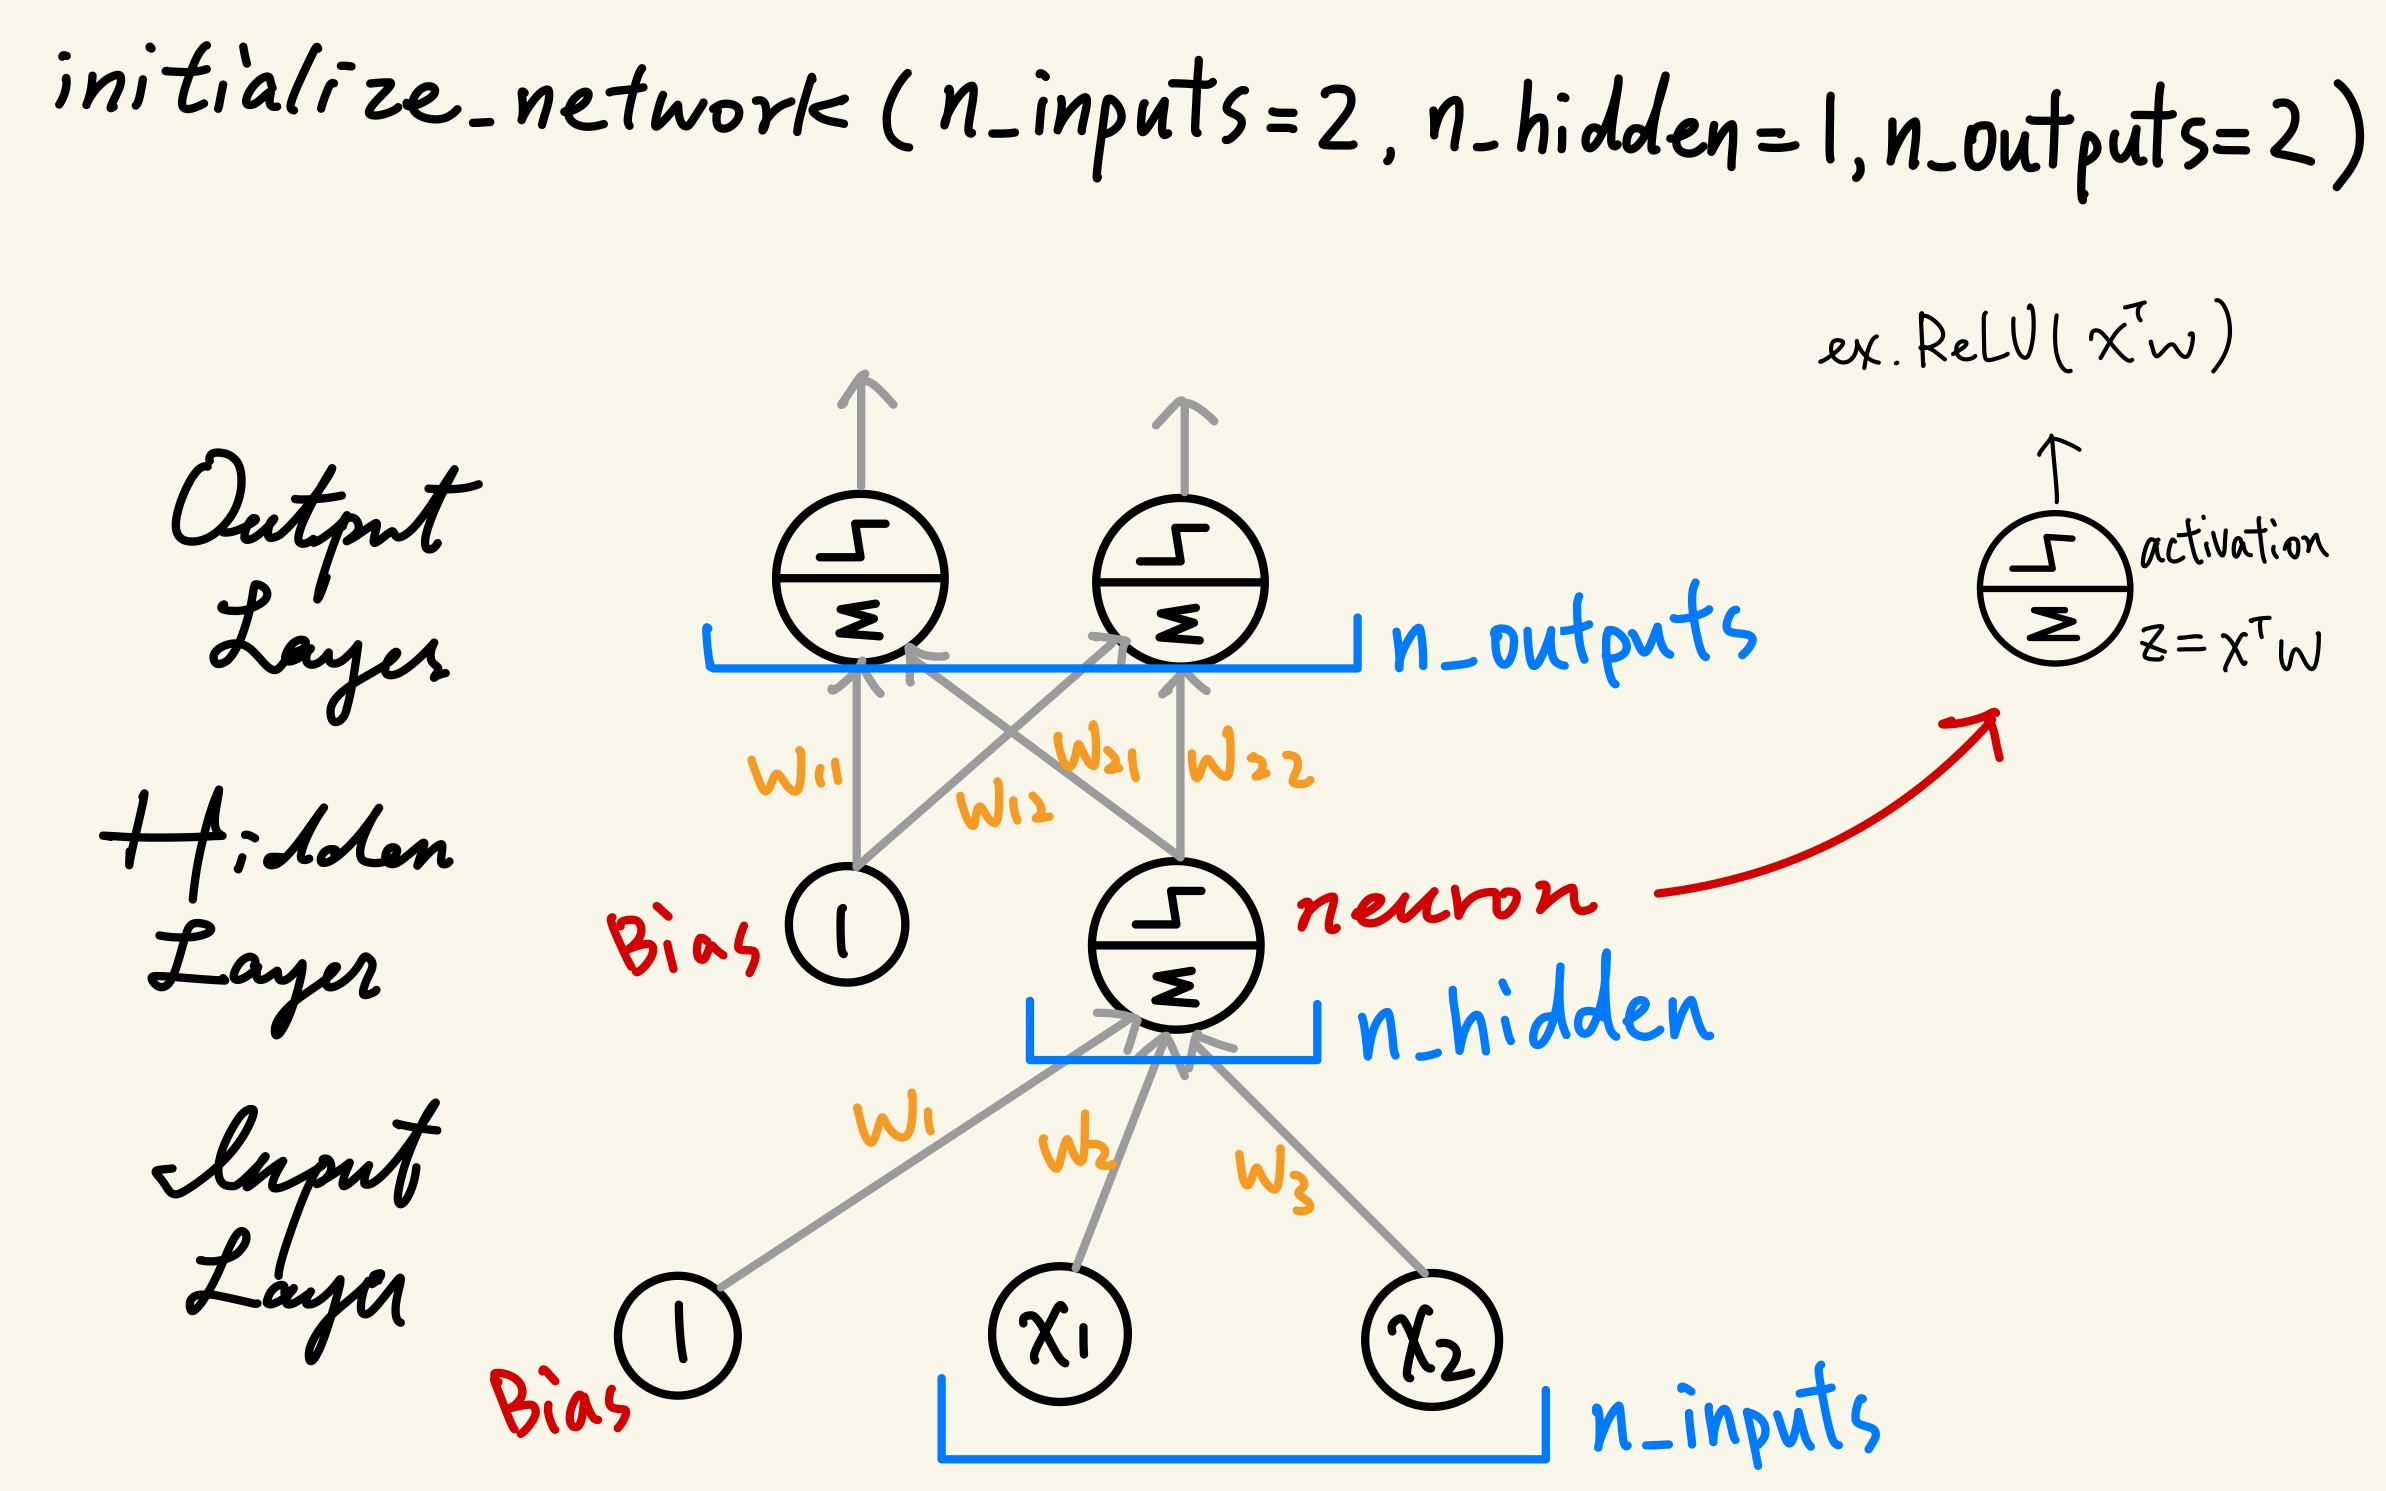 initialize_network(n_inputs=2, n_hidden=1, n_outputs=2)
ex. ReLU(xᵀw)
Output
Layer
activation
z = xᵀw
n_outputs
W11
W12
W21
W22
Hidden
Layer
Bias
1
neuron
n_hidden
W1
W2
W3
Input
Layer
Bias
1
x1
x2
n_inputs